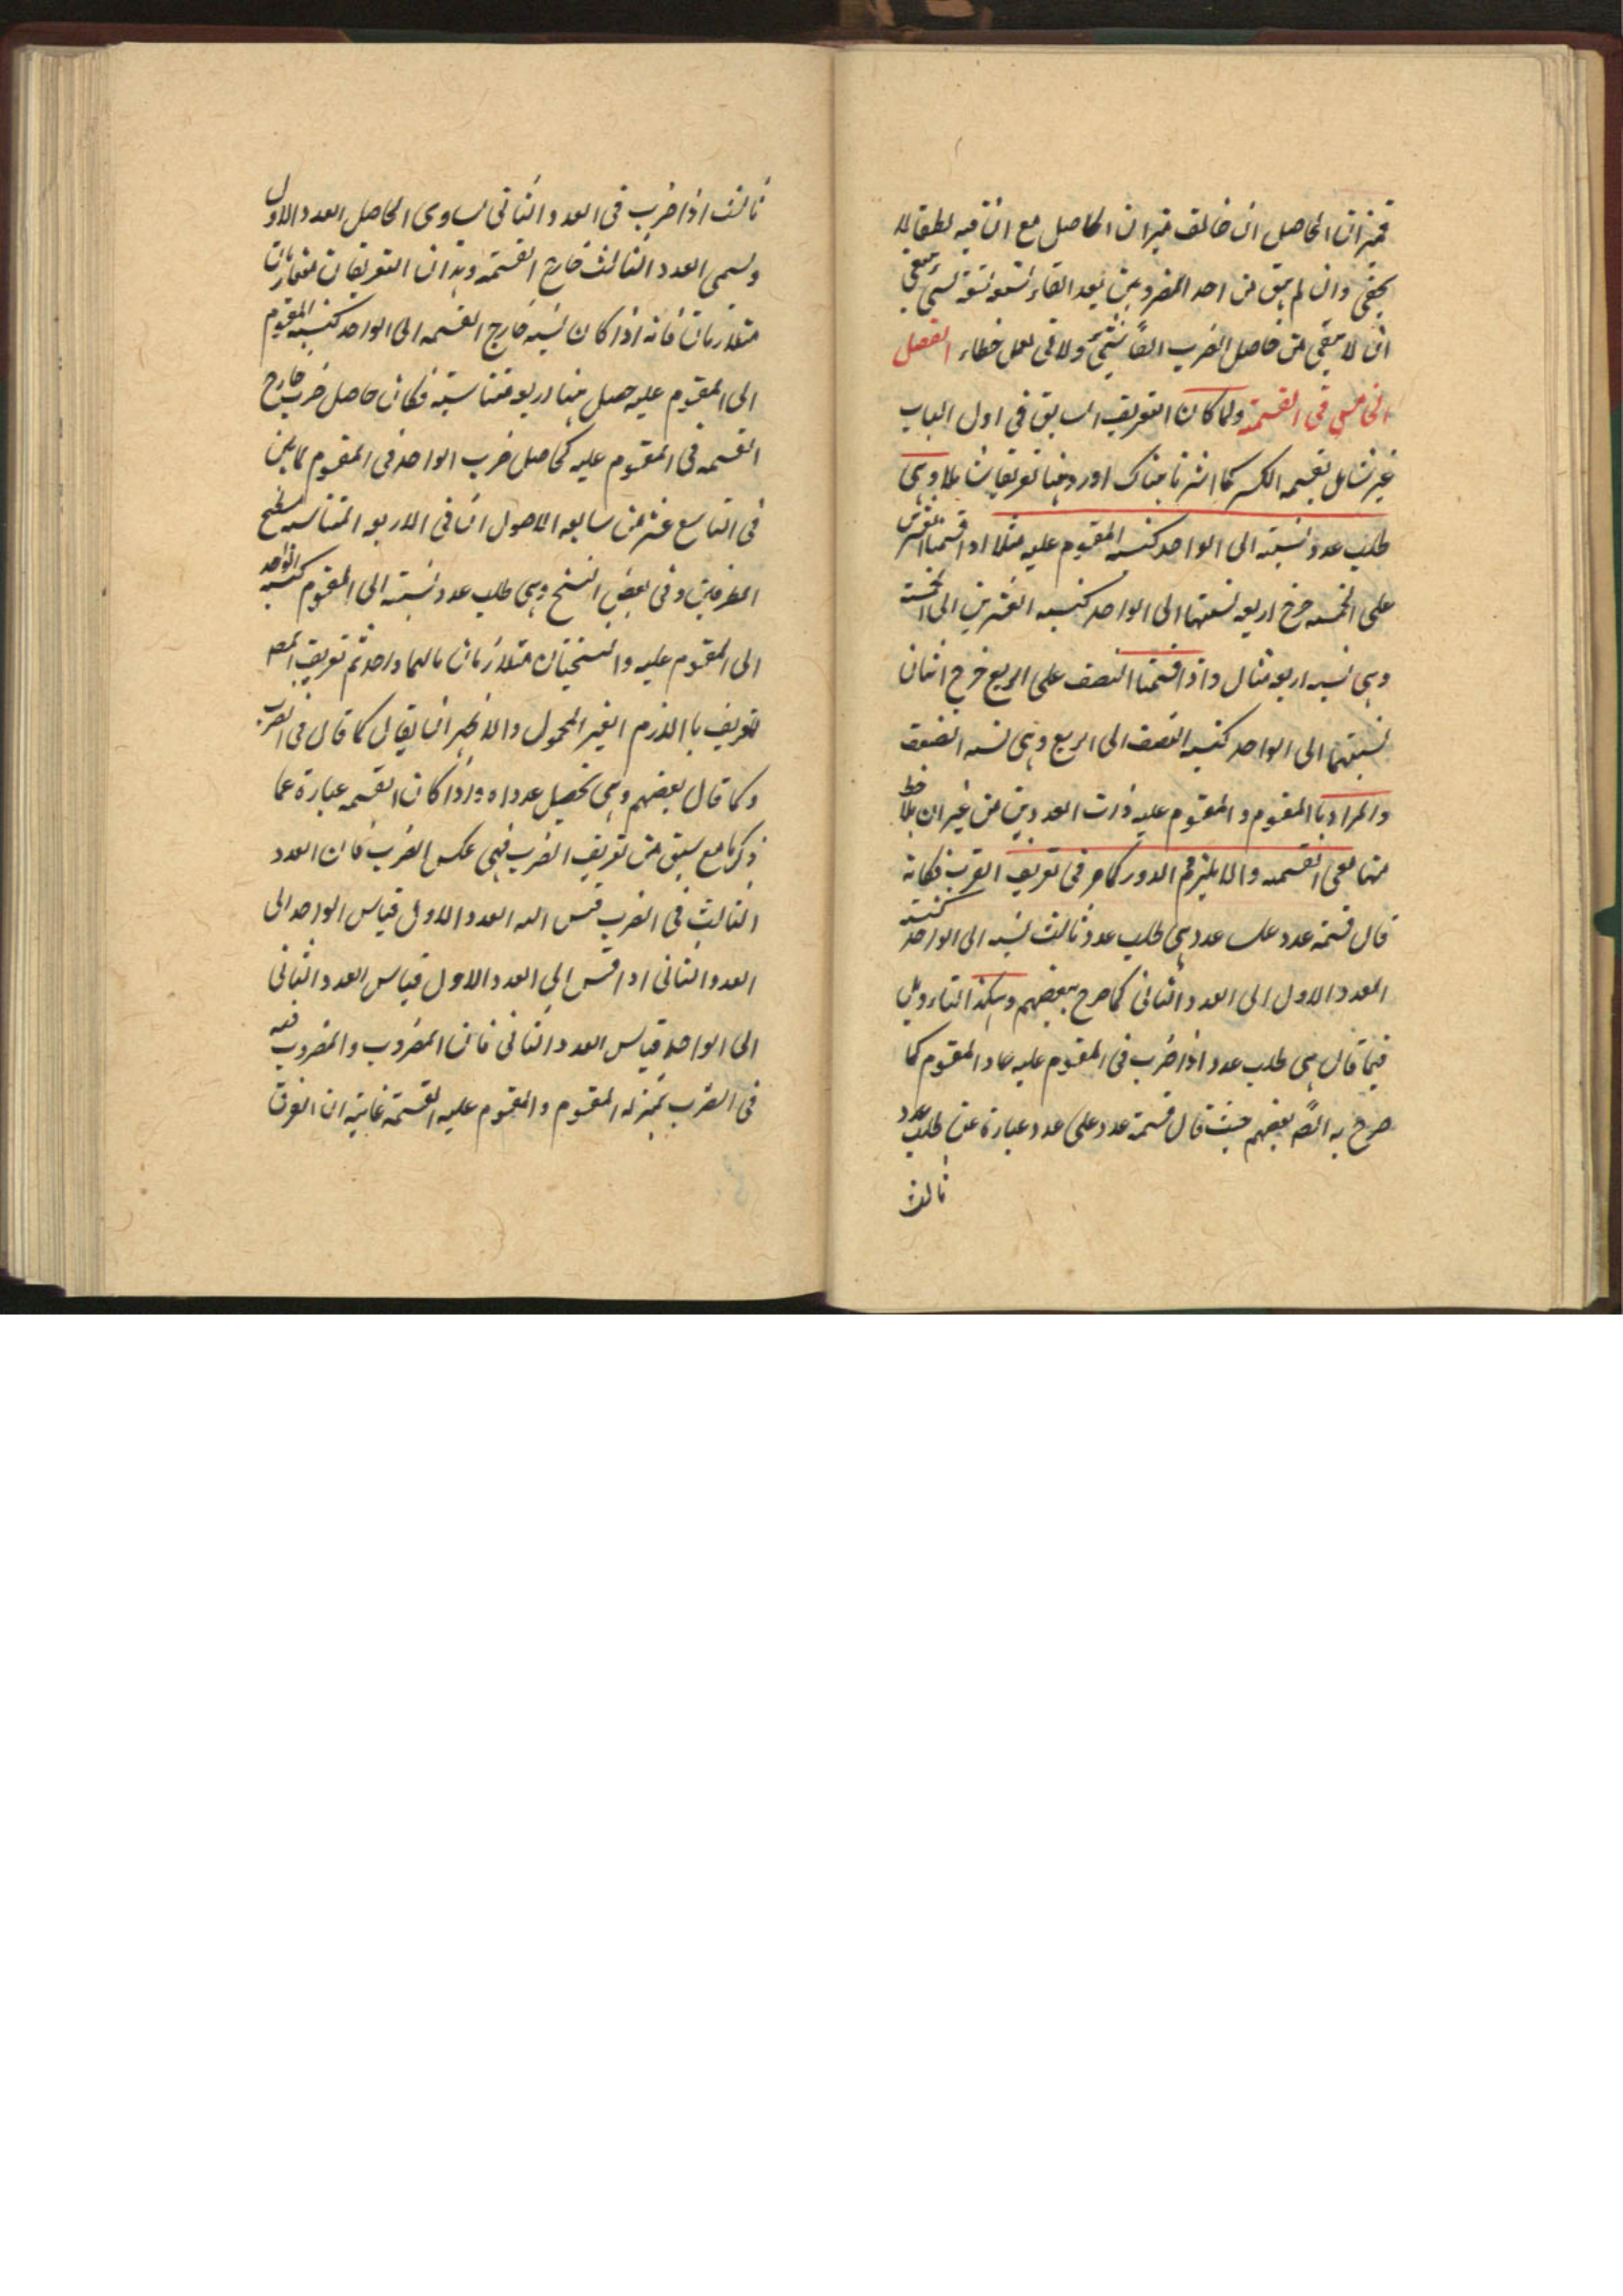 فميزان الحاصل ان خالف ميزان الحاصل مع ان فيه
يخفى وان لم يبق من احد المضروبين بعد القاء تسعة تسعة شئ ينبغى
ان لا يبقى من حاصل الضرب ايضا شئ ولا فى العمل خطاء الفصل
الخامس فى القسمة ولما كان التعريف السابق فى اول الباب
غير شامل لقسمة الكسر كما اشرنا هناك اورد هنا تعريفا شاملا وهى
طلب عدد نسبته الى الواحد كنسبة المقسوم عليه مثلا اذا قسمنا العشرين
على الخمسة خرج اربعة نسبتها الى الواحد كنسبة العشرين الى الخمسة
وهى نسبة اربعة امثال واذا قسمنا النصف على الربع خرج اثنان
نسبتهما الى الواحد كنسبة النصف الى الربع وهى نسبة الضعف
والمراد با المقسوم و المقسوم عليه ذات العددين من غير ان يلاحظ
منهما معنى القسمة والا يلزم الدور كما مر فى تعريف الضرب فكانه
قال قسمة عدد على عدد هى طلب عدد ثالث نسبته الى الواحد كنسبة
العدد الاول الى العدد الثانى كما صرح بعضهم وهكذا التاءويل
فيما قال هى طلب عدد اذا ضرب فى المقسوم عليه عاد المقسوم كما
صرح به ايضا بعضهم حيث قال قسمة عدد على عدد عبارة عن طلب عدد
ثالث
ثالث اذا ضرب فى العدد الثانى يساوى الحاصل العدد الاول
ويسمى العدد الثالث خارج القسمة وهذان التعريفان متقاربان
متلازمان فانه اذا كان نسبة خارج القسمه الى الواحد كنسبة المقسوم
الى المقسوم عليه حصل هنا اربعة متناسبة فكان حاصل ضرب خارج
القسمه فى المقسوم عليه كحاصل ضرب الواحد فى المقسوم لما بين
فى التاسع عشر من سابعه الاصول ان فى الاربعة المتناسبة مسطح
الطرفين وفى بعض النسخ وهى طلب عدد نسبته الى المقسوم كنسبة الواحد
الى المقسوم عليه والنسختان متلازمان مالهما واحد ثم تعريف المص
تعريف با اللازم الغير المحمول والاظهر ان يقال كما قال فى الضرب
وكما قال بعضهم وهى تحصيل عدد اه واذا كان القسمه عبارة عما
ذكرنا مع سبق من تعريف الضرب فهى عكس الضرب فان العدد
الثالث فى الضرب قيس اليه العدد الاول قياس الواحد الى
العدد الثانى اذا قيس الى العدد الاول قياس العدد الثانى
الى الواحد قياس العدد الثانى فان المضروب والمضروب فيه
فى الضرب بمنزلة المقسوم والمقسوم عليه القسمة غايته ان الفرق